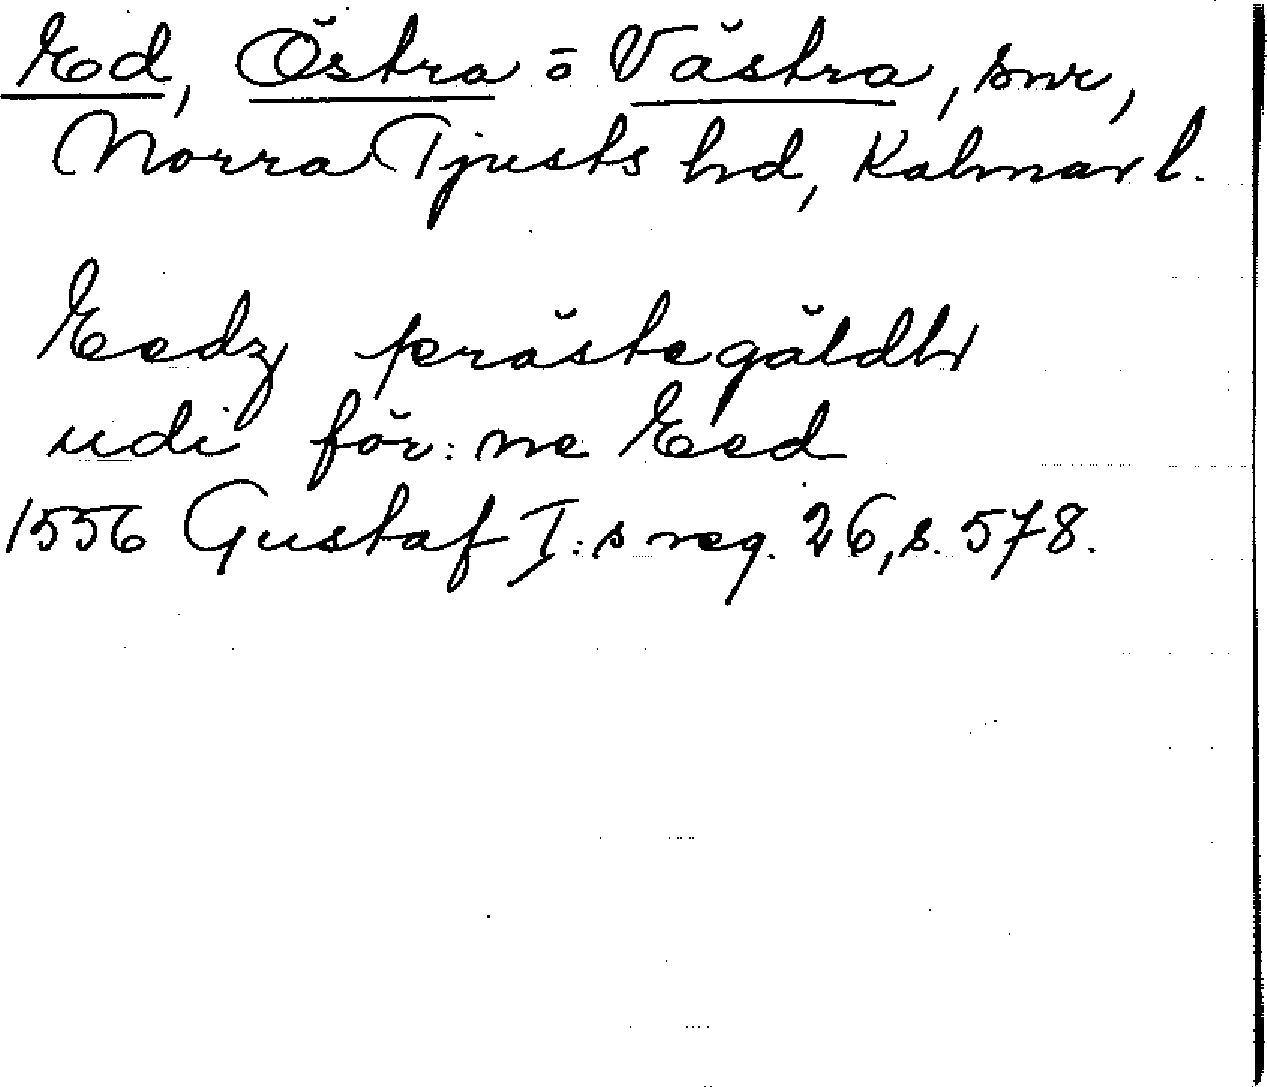 Ed, Östra o Västra, snr,
Norra Tjusts hd, Kalmar l.
Eedz prästegäldh
udi för: ne Eed
1556 Gustaf I:s reg. 26, s. 578.